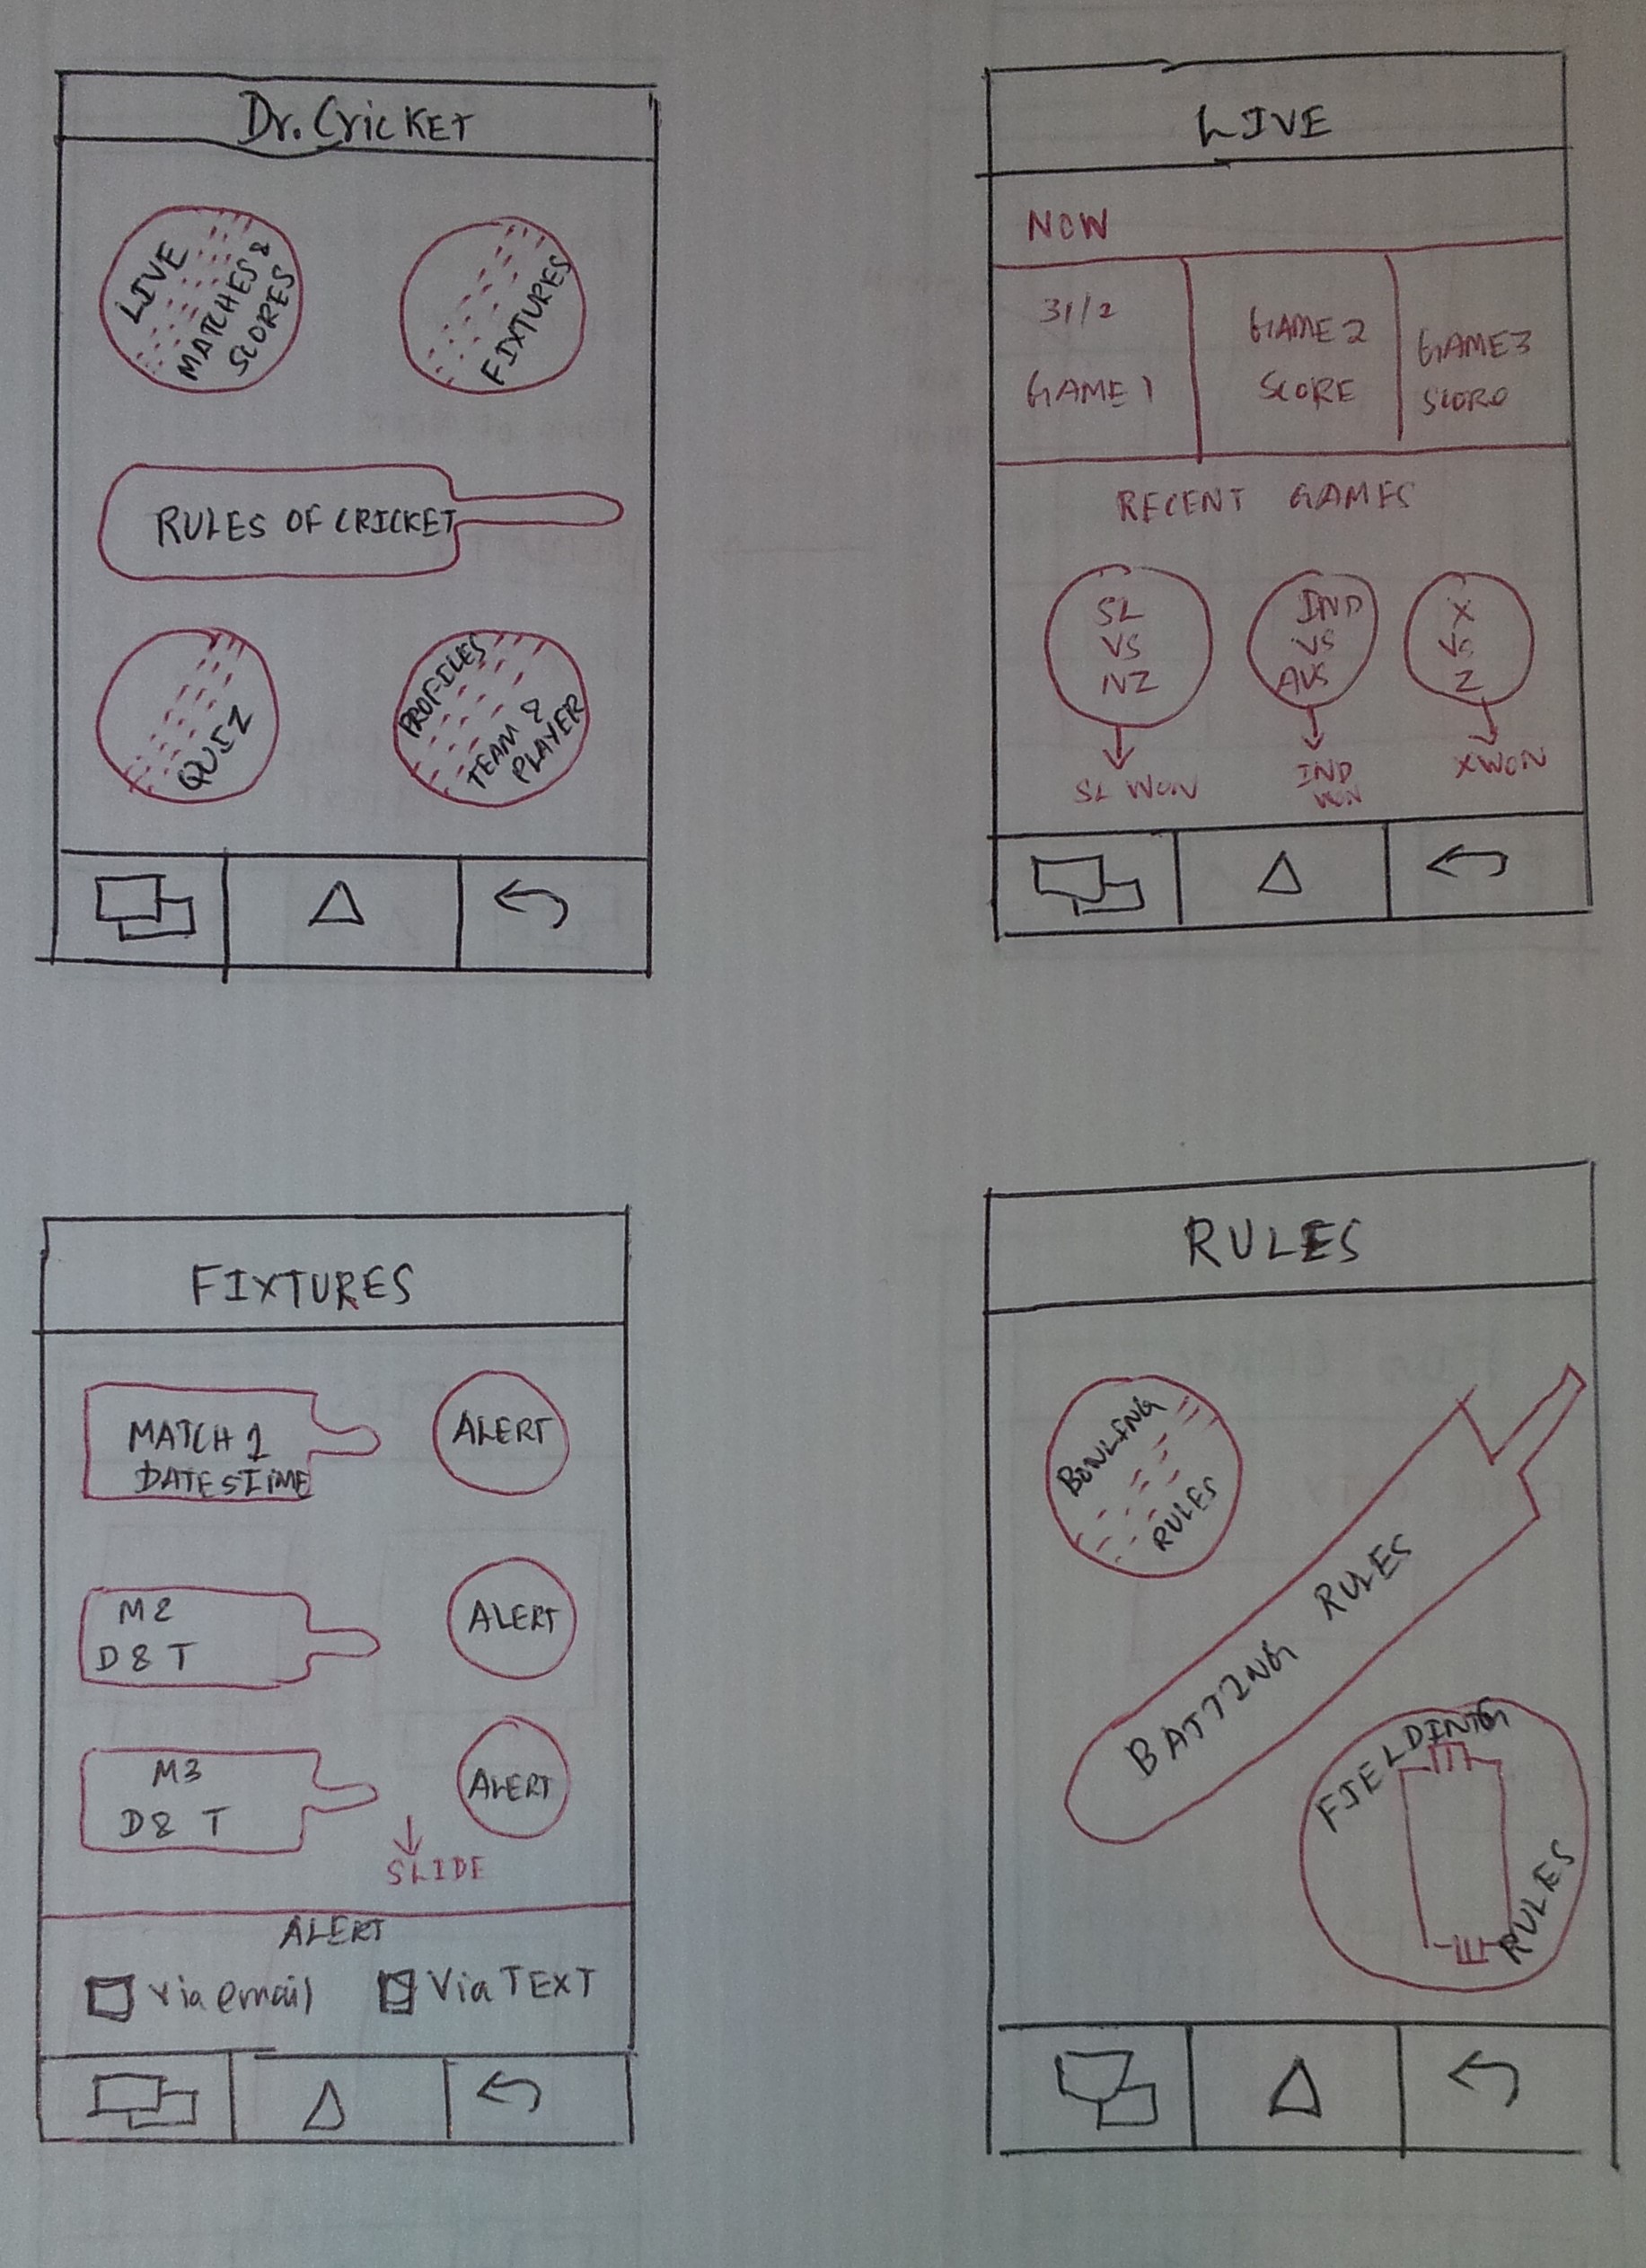 Dr. Cricket
LIVE
MATCHES &
SCORES
FIXTURES
RULES OF CRICKET
QUIZ
PROFILES
TEAM &
PLAYER
LIVE
NOW
31/2
GAME 1
GAME 2
SCORE
GAME 3
SCORE
RECENT GAMES
SL
VS
NZ
SL WON
IND
VS
AUS
IND
WON
X
VS
Z
X WON
FIXTURES
MATCH 1
DATE & TIME
ALERT
M2
D & T
ALERT
M3
D & T
ALERT
SLIDE
ALERT
Via email
Via TEXT
RULES
BOWLING
RULES
BATTING RULES
FIELDING
RULES